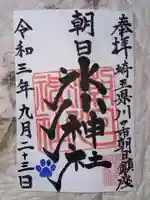 奉拝 埼玉県川口市朝日鎮座
朝日
氷川神社
令和三年九月二十三日